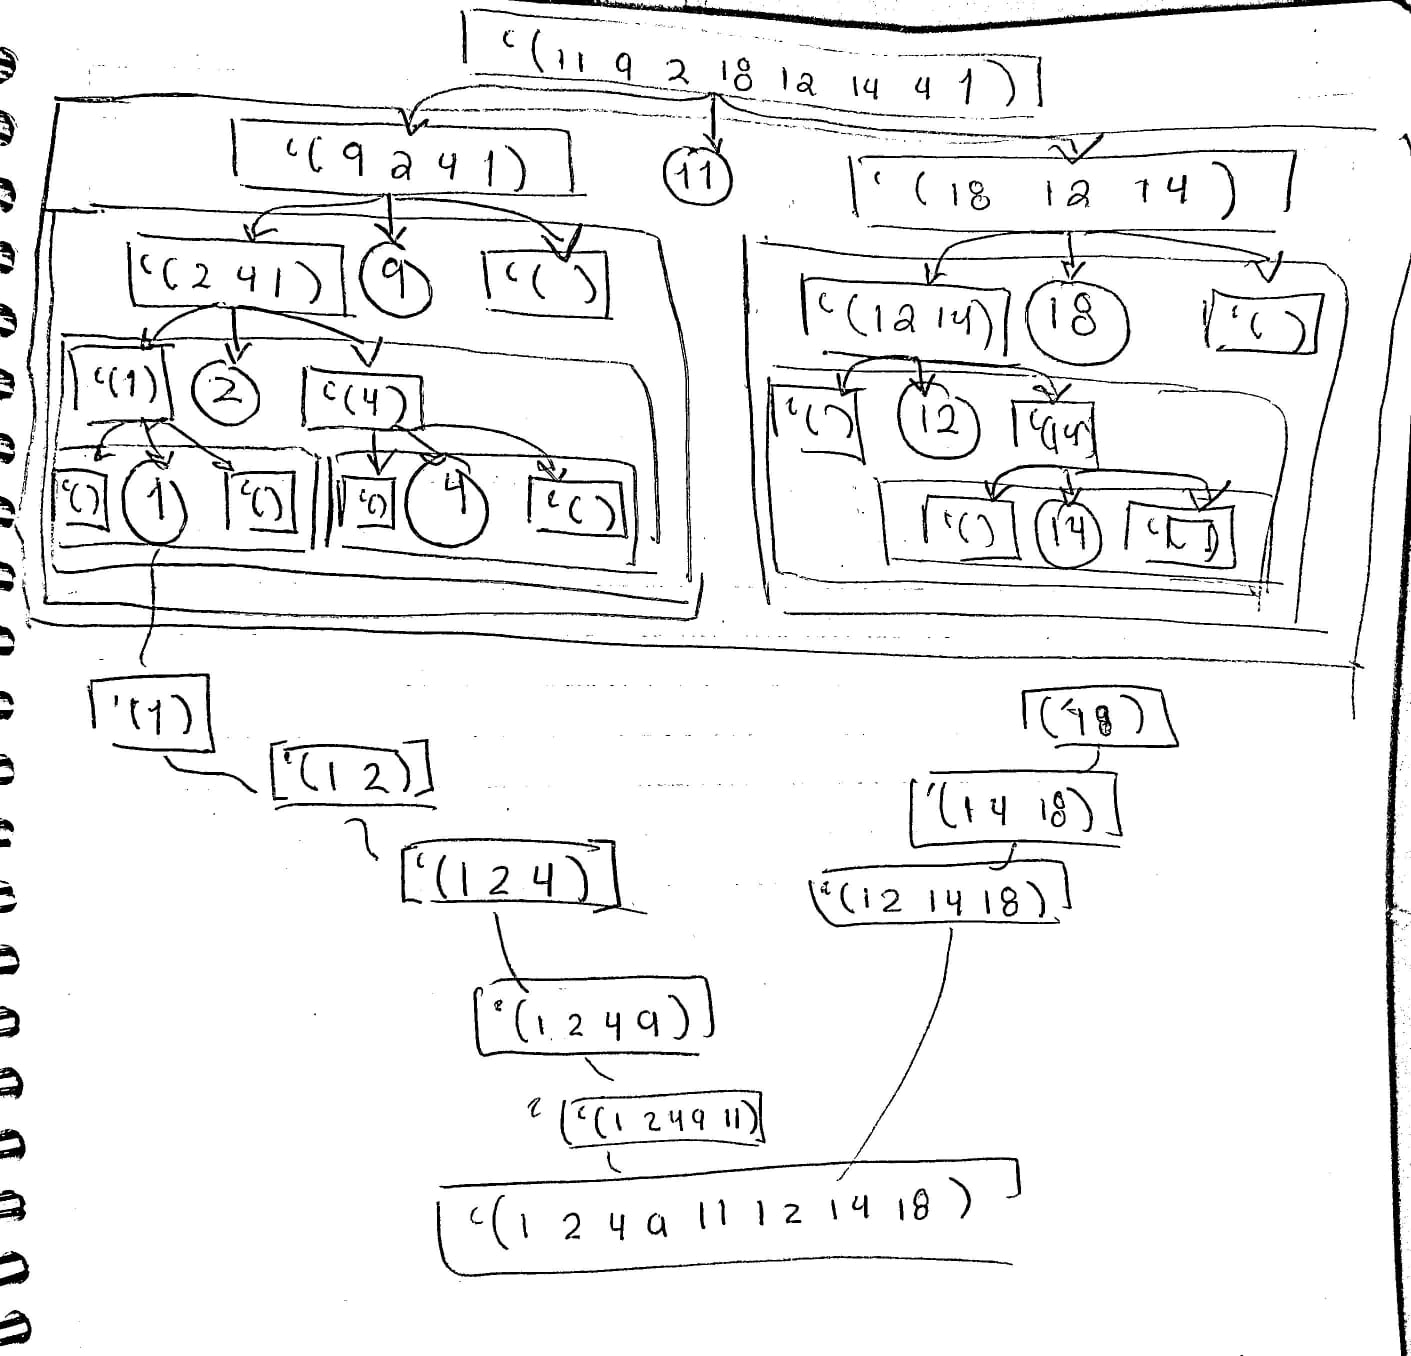 '(11 9 2 18 12 14 4 1)
'(9 2 4 1) 11 '(18 12 14)
'(2 4 1) 9 '() '(12 14) 18 '()
'(1) 2 '(4) '() 12 '(14)
'() 1 '() '() 4 '() '() 14 '()
'(1) ('18)
'(1 2) '(14 18)
'(1 2 4) '(12 14 18)
'(1 2 4 9)
'(1 2 4 9 11)
'(1 2 4 9 11 12 14 18)